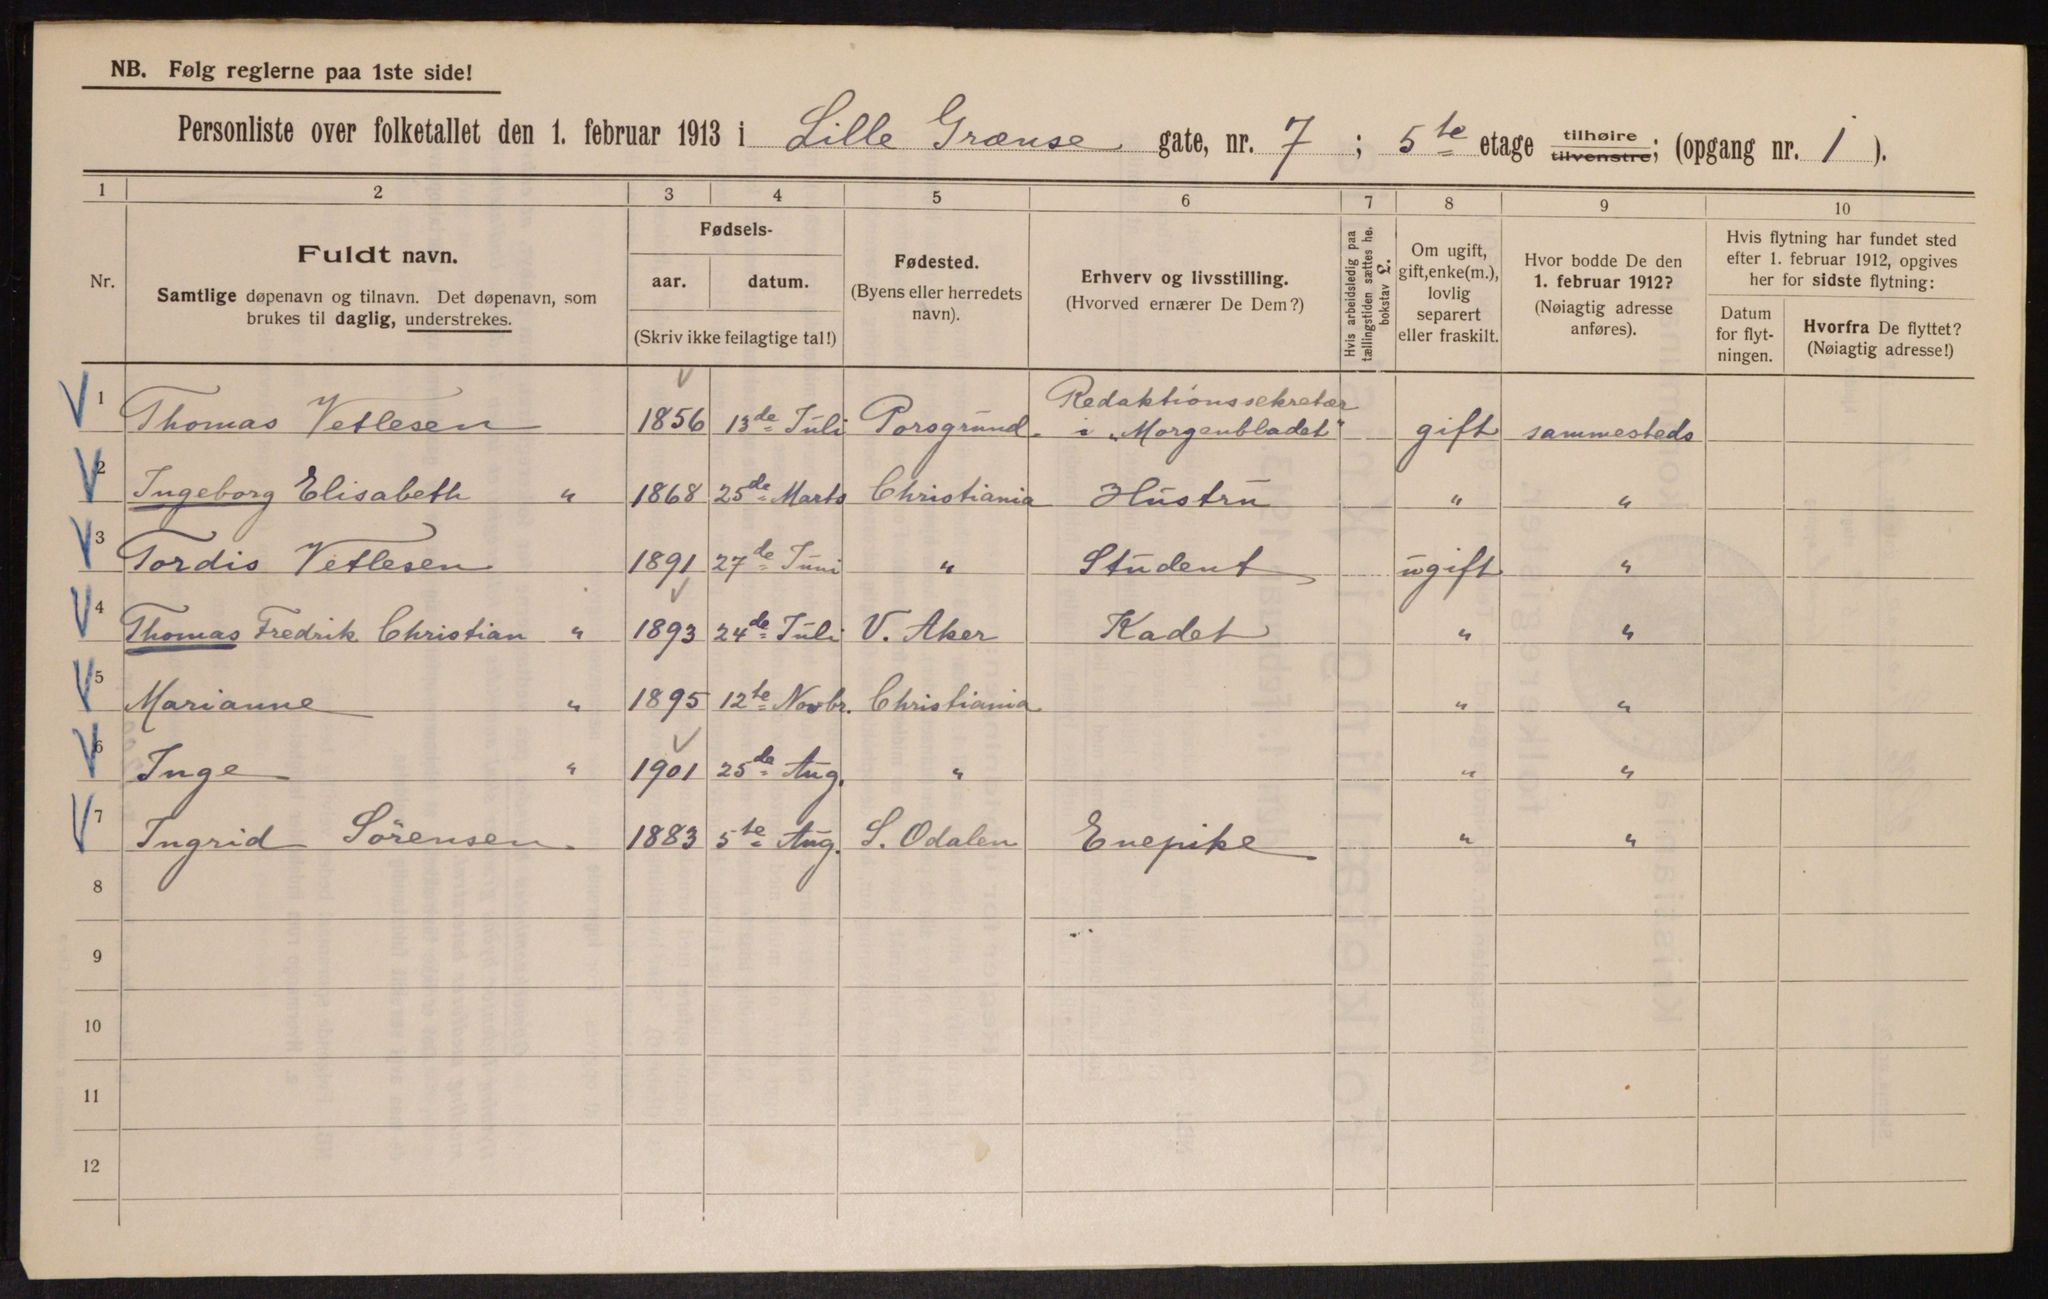 NB. Følg reglerne paa 1ste side!
Personliste over folketallet den 1. februar 1913 i Lille Grænse gate, nr. 7 ; 5te etage tilhøire tilvenstre; (opgang nr. 1 ).
1 2 3 4 5 6 7 8 9 10
Nr.
Fuldt navn.
Samtlige døpenavn og tilnavn. Det døpenavn, som
brukes til daglig, understrekes.
Fødsels-
aar. datum.
(Skriv ikke feilagtige tal!)
Fødested.
(Byens eller herredets
navn).
Erhverv og livsstilling.
(Hvorved ernærer De Dem?)
Hvis arbeidsledig paa
tællingstiden sættes he.
bokstav £.
Om ugift,
gift, enke(m.),
lovlig
separert
eller fraskilt.
Hvor bodde De den
1. februar 1912?
(Nøiagtig adresse
anføres).
Hvis flytning har fundet sted
efter 1. februar 1912, opgives
her for sidste flytning:
Datum
for flyt-
ningen.
Hvorfra De flyttet?
(Nøiagtig adresse!)
1 Thomas Vetlesen 1856 13de Juli Porsgrund. Redaktionssekretær
i „Morgenbladet" gift sammesteds
2 Ingeborg Elisabeth " 1868 25de Marts Christiania Hustru " "
3 Tordis Vetlesen 1891 27de Juni " Student ugift "
4 Thomas Fredrik Christian " 1893 24de Juli V. Aker Kadet " "
5 Marianne " 1895 12te Novbr. Christiania " "
6 Inge " 1901 25de Aug. " " "
7 Ingrid Sörensen 1883 5te Aug. S. Odalen Enepike " "
8
9
10
11
12